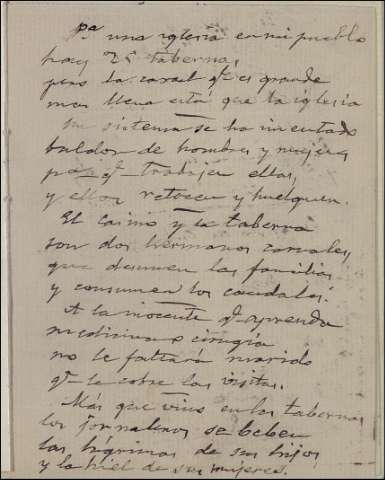 pa una iglesia en mi pueblo
hay 25 tabernas,
pero la carcel qe es grande
mas llena está que la iglesia
Un sistema se ha inventado
de hombres y mujeres
pa qe trabajen ellas,
y ellos retocen y huelguen.
El casino y la taberna
son dos hermanos carnales,
que desunen las familias
y consumen los caudales.
A la inocente qe aprenda
medicina o cirugía
no le faltará marido
qe le cobre las visitas.
Más que vino en las tabernas
los jornaleros se beben
las lágrimas de sus hijos
y la hiel de sus mujeres.